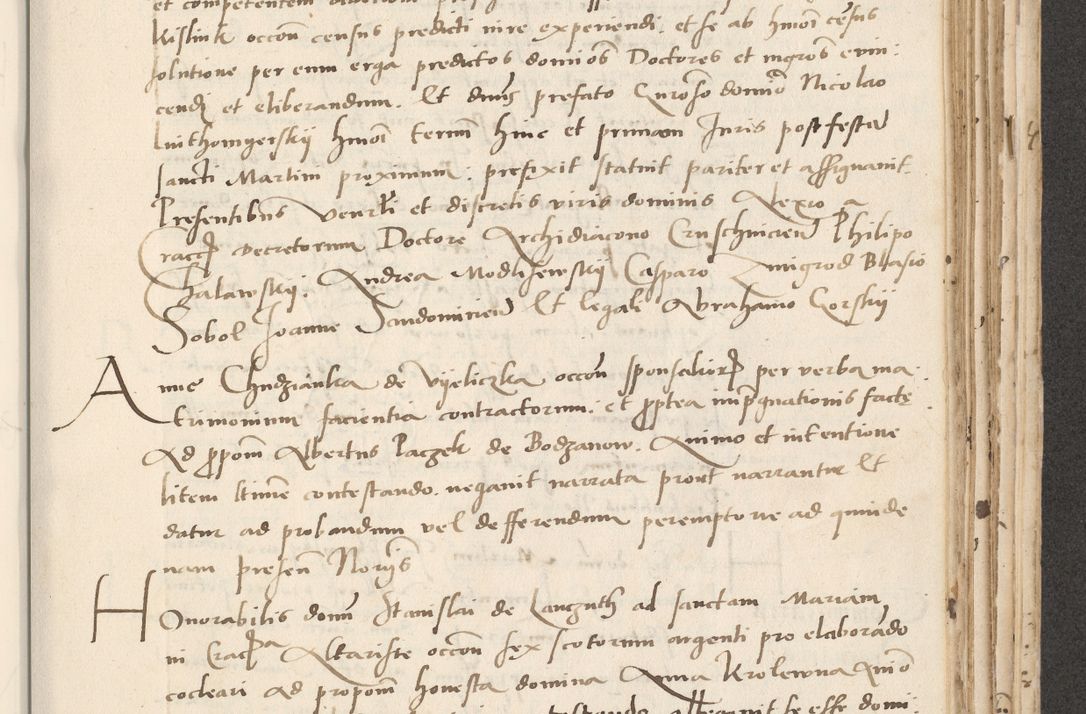 Kislink occoñ census predicti iure experiendi, et se ab hmoi census
solutione per eum erga predictos dominos Doctores et nigros euin:
cendi et eliberandum. Et dnus prefato Generoso domino Nicolao
Luithomgerskij hmoi termi hinc et primam Juris post festa
sancti Martini proximum: prefixit statuit pariter et assignauit.
Presentibus Venerli et discretis viris dominis Alexio
Cracoñ decretorum Doctore Archidiacono Cruschnicieñ Philipo
Chalawskij: Andrea Modlisewskij Casparo Zmigrod Blasio
Sobol Joanne Sandomirieñ Et legali Abrahamo Gorskij
Anne Chudzianka de Vyeliczka occoñ sponsaliorum per verba ma:
trimonium facientia contractorum: et propterea impregnationis facte
Ad propom Albertus Paczek de Bodzanow. Animo et intentione
litem litime contestando. negauit narrata prout narrantur Et
datur ad probandum vel defferendum peremptorie ad quinde
nam preseñ Norijs
Honorabilis domni Stanislai de Lanczuth ad sanctam Mariam
in Cracovia Altariste occoñ sex scotorum argenti pro elaborando
cocleari Ad propom honesta domina Anna Krolewna animo